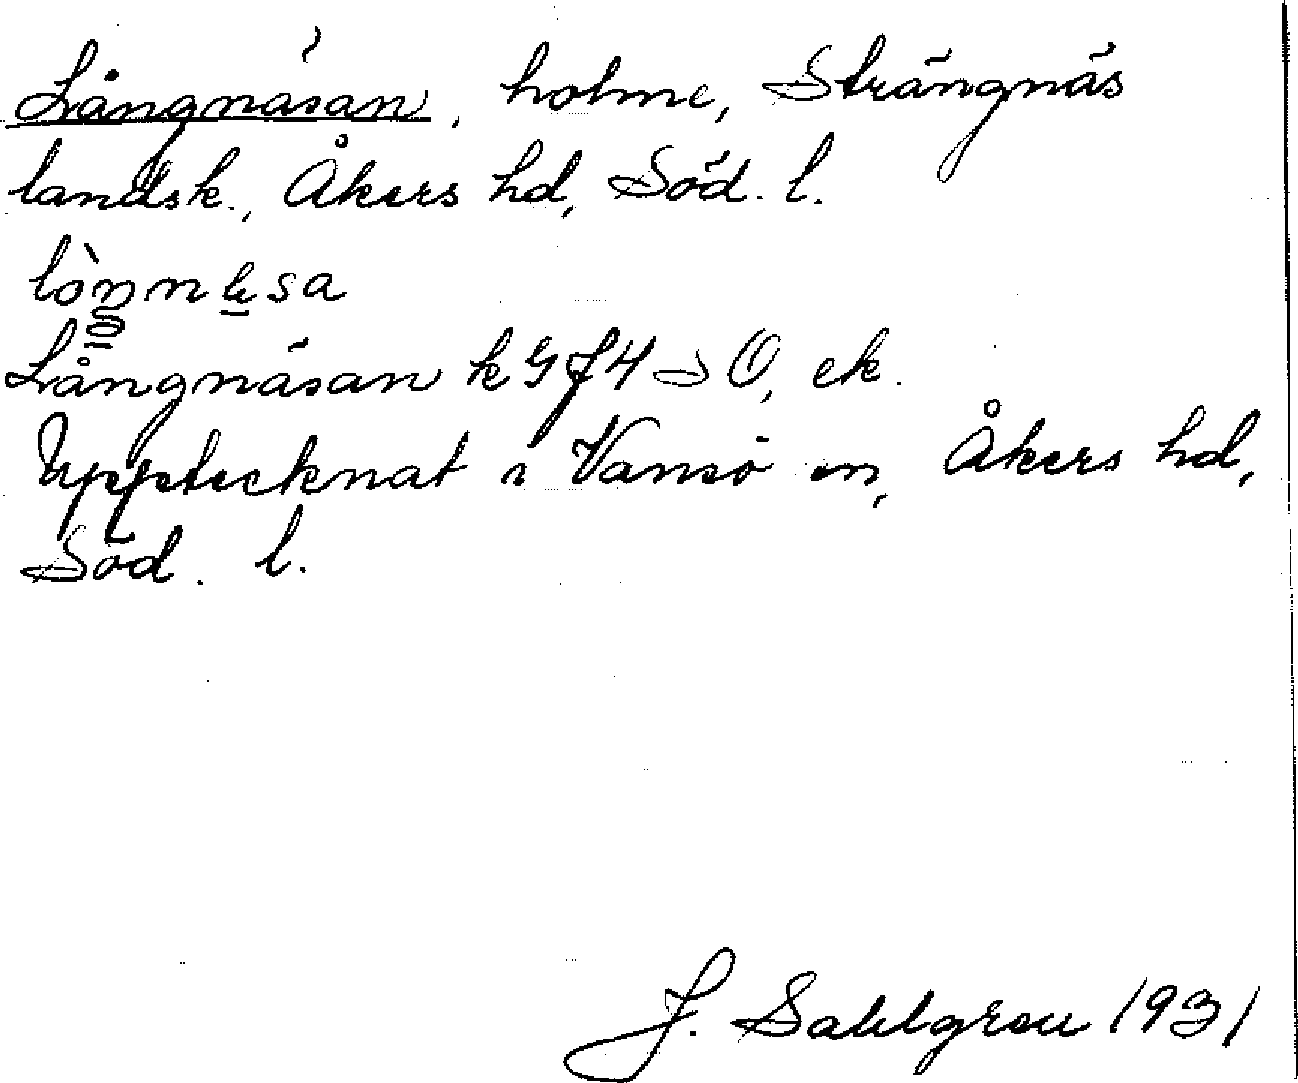 Långnäsan, holme, Strängnäs
landsk., Åkers hd, Söd. l.
Långnäsan k GJ4 SO, ek.
Upptecknat i Vansö sn, Åkers hd,
Söd. l.
J. Sahlgren 1931